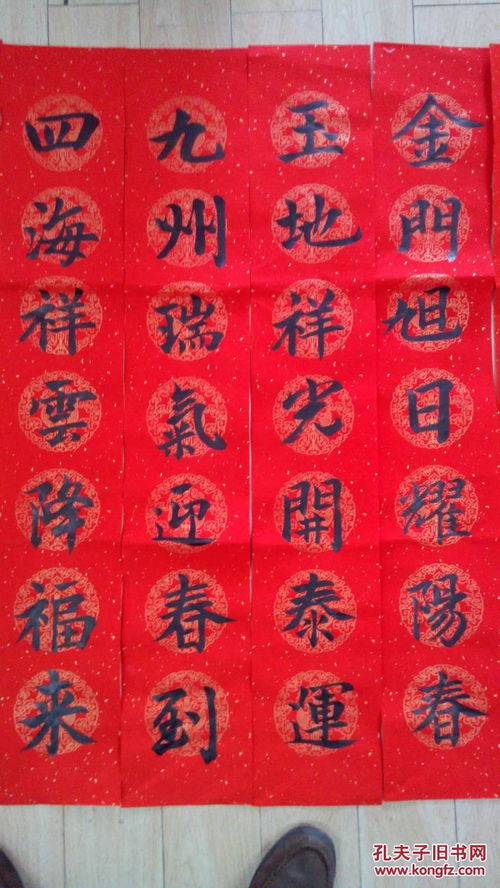 金門旭日耀陽春
玉地祥光開泰運
九州瑞氣迎春到
四海祥雲降福来
孔夫子旧书网
www.kongfz.com